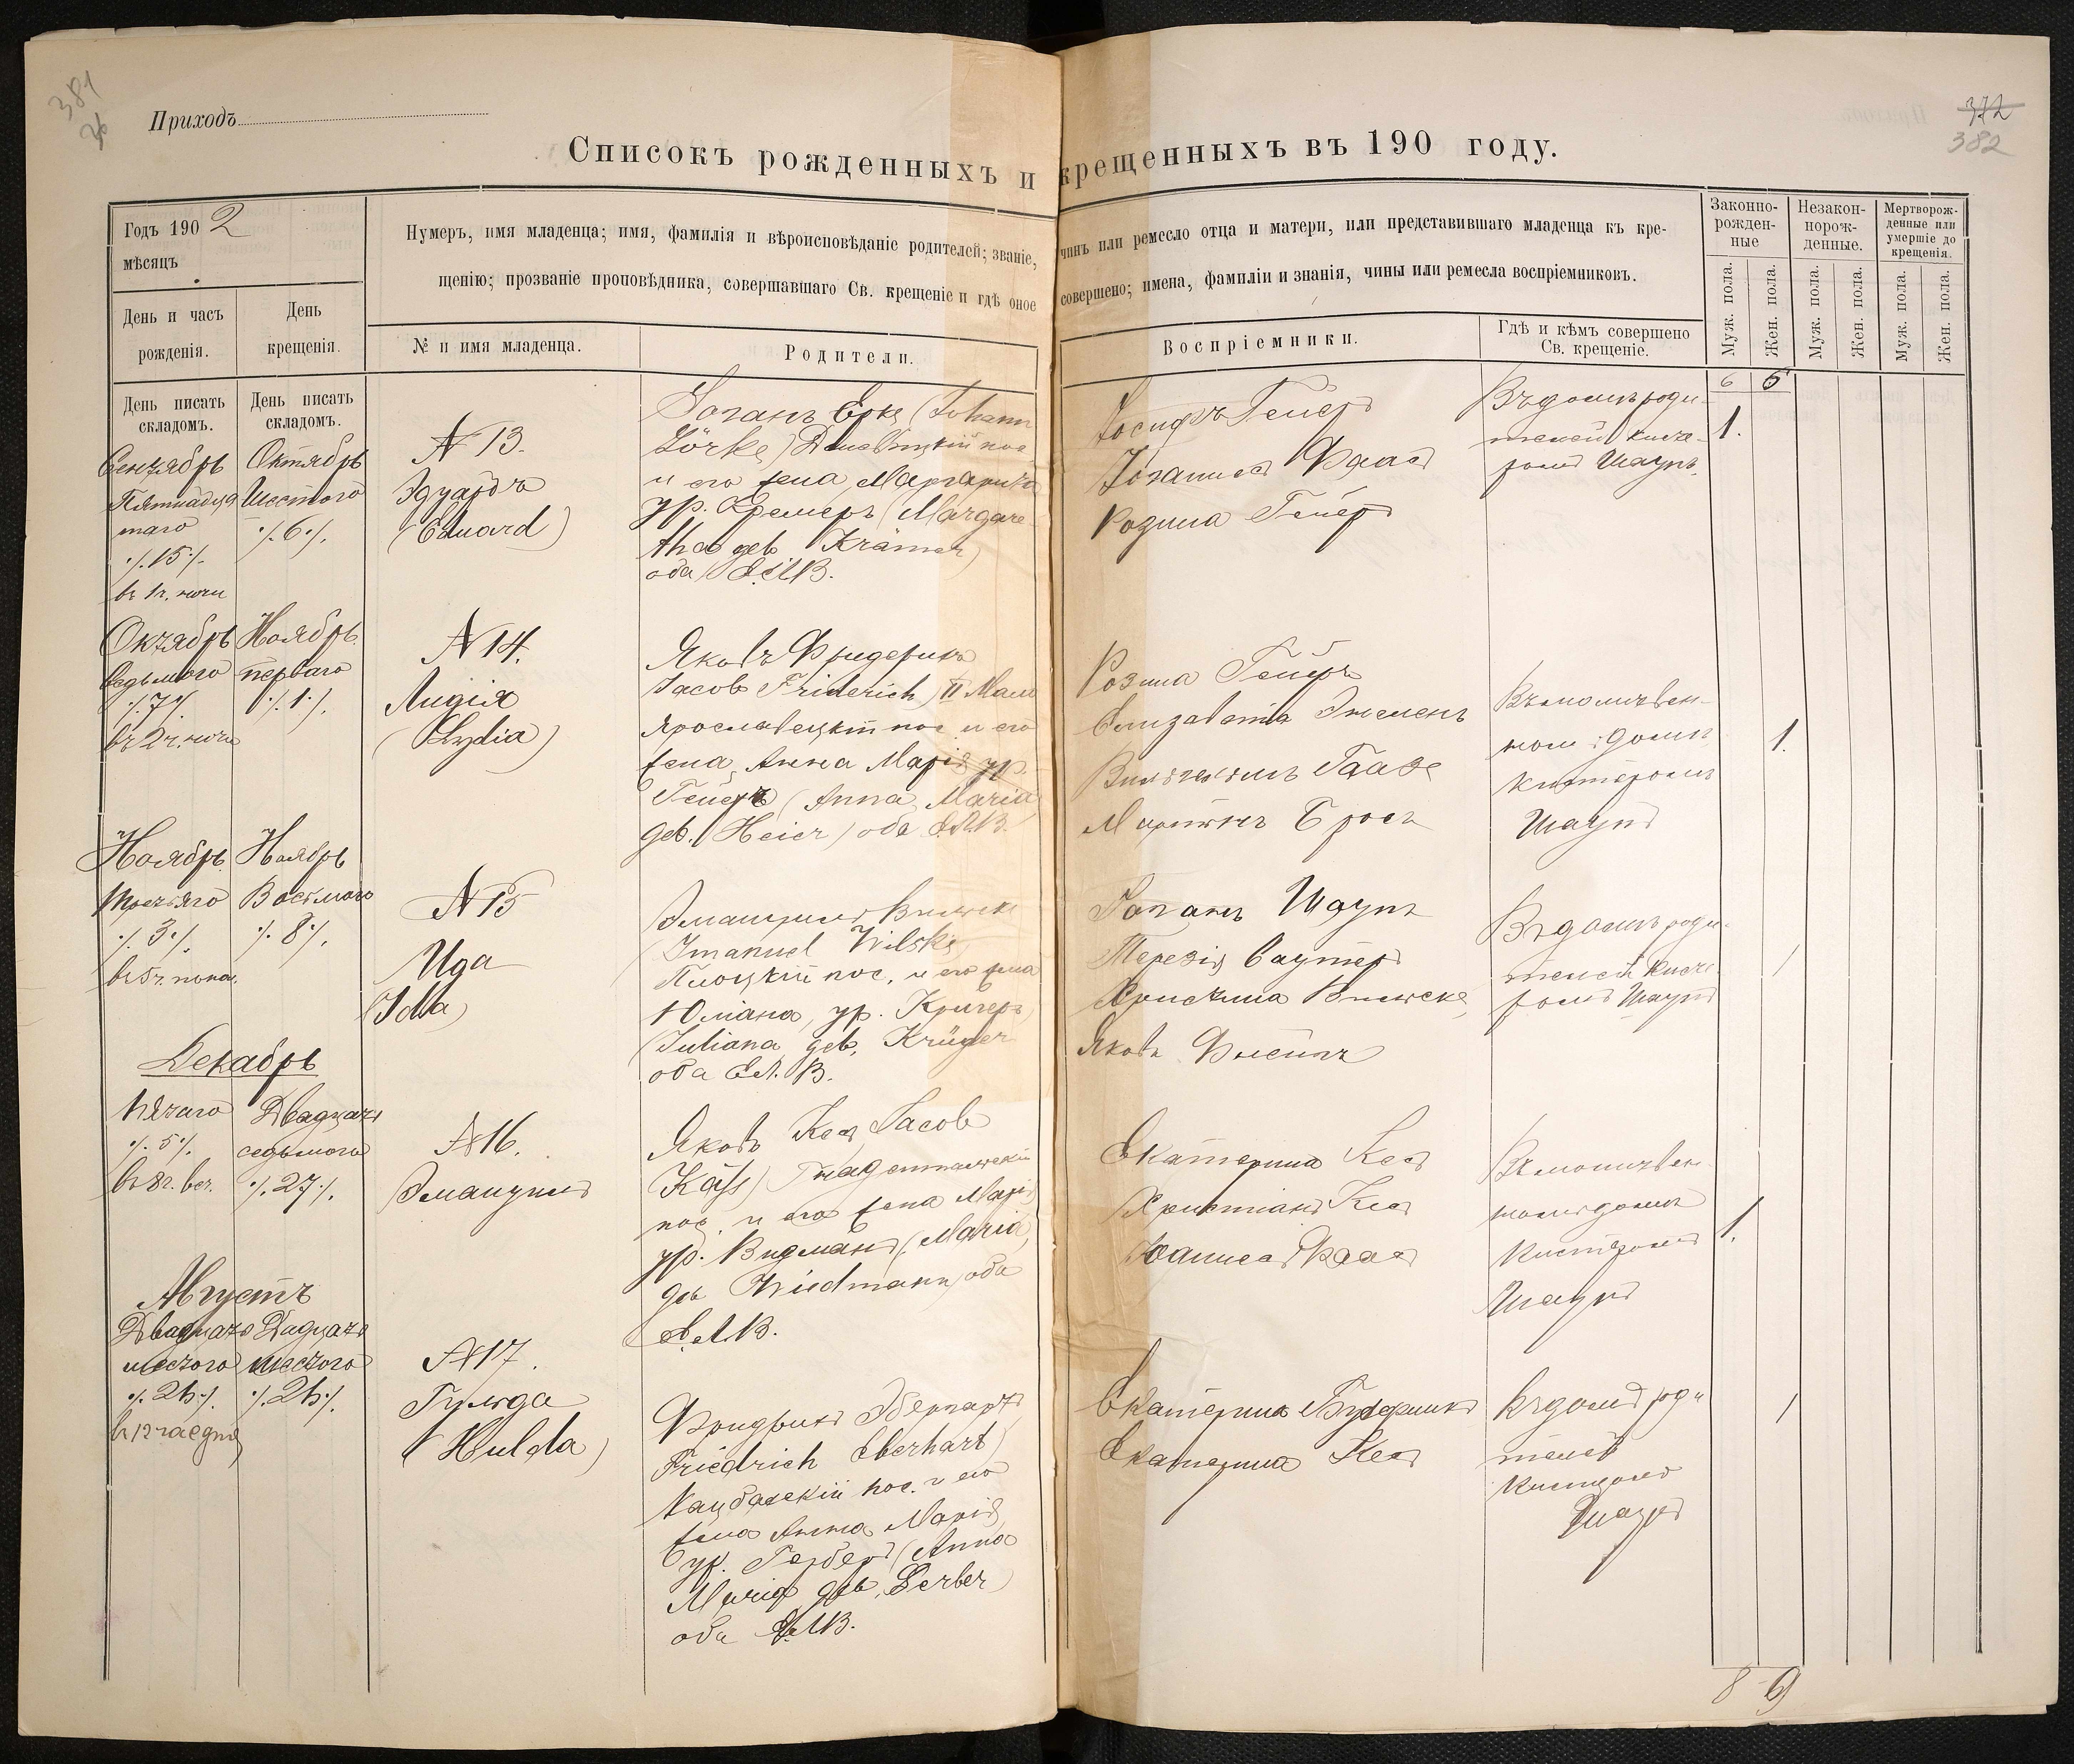 381
Приходъ
372
382
Списокъ рожденныхъ и крещенныхъ въ 190 году.
Годъ 1902
мѣсяцъ
Нумеръ, имя младенца; имя, фамилія и вѣроисповѣданіе родителей; званіе, чинъ или ремесло отца и матери, или представившаго младенца къ кре-
щенію; прозваніе проповѣдника, совершавшаго Св. крещеніе и гдѣ оное совершено; имена, фамиліи и знанія, чины или ремесла воспріемниковъ.
Законно-
рожден-
ные
Незакон-
норож-
денные.
Мертворож-
денные или
умершіе до
крещенія.
День и часъ
рожденія.
День
крещенія.
№ и имя младенца.
Родители.
Воспріемники.
Гдѣ и кѣмъ совершено
Св. крещеніе.
Муж. пола.
Жен. пола.
Муж. пола.
Жен. пола.
Муж. пола.
Жен. пола.
День писать
складомъ.
День писать
складомъ.
6 6
Сентябрь
Пятнадца
таго
·/.15·/.
въ 1ч. ночи
Октябрь
Шестого
·/.6·/.
N 13.
Эдуардъ
(Eduard)
Іоганъ Ерке (Johann
Jörke) пос
и его жена Маргарита
ур. Кремеръ (Margare
tha geb Krämer)
оба Е.Л.В.
Іосифъ Гейеръ
Іоганнес Фаас
Розина Гейеръ
Въ домѣ роди-
телей кисте-
ромъ Шаупъ.
1.
Октябрь
Седьмого
·/.7·/.
въ 2ч. ночи
Ноябрь
перваго
·/.1·/.
N 14.
Лидія
(Lydia)
Яковъ Фридерихъ
Jacob Friderich) II Мало
ярославецкій пос и его
жена Анна Марія ур.
Гейеръ (Anna Maria
geb. Heier) оба Е.Л.В.
Розина Гейеръ
Елизабета
Вильгельмъ Гаазе
Мартинъ Брост
Въ молитвен-
номъ домѣ
кистеромъ
Шаупъ
1.
Ноябрь
третьяго
·/.3·/.
Ноябрь
Восьмого
·/.8·/.
N 15
Ида
(Ida)
Эмануилъ Вильске
(Imanuel Wilske)
Плоцкій пос. и его жена
Юліана, ур. Кригеръ
(Juliana geb. Krüger
оба Е.Л.В.
Іоганъ Шаупъ
Терезія Саутеръ
Христина Вильске
Яковъ
Въ домѣ роди-
телей кисте-
ромъ Шаупъ
1
Декабрь
пятаго
·/.5·/.
въ 8ч. веч.
Двадцать
седьмого
·/.27·/.
N16.
Эмануилъ
Яковъ Кес Jacob
Käss) Гнаденталскій
пос. и его жена Марія
ур. Видманъ (Maria
geb Wiedmann) оба
Е.Л.В.
Екатерина Кес
Христіанъ Кес
Іоаннес Фаас
Въ молитвен-
номъ домѣ
Кистеромъ
Шаупъ
1.
Августъ
Двадцать
шестого
·/.26·/.
в 12 час дня
Двадцать
шестого
·/.26·/.
N17.
Гульда
(Hulda)
Фридрихъ Эбергартъ
Friedrich Eberhart)
Кацбахскій пос. и его
жена Анна Марія
ур. Герберъ (Anna
Maria geb. Gerber)
оба Е.Л.В.
Екатерина
Екатерина Кес
Въ домѣ роди
телей
Кистеромъ
Шаупъ
1
8 9